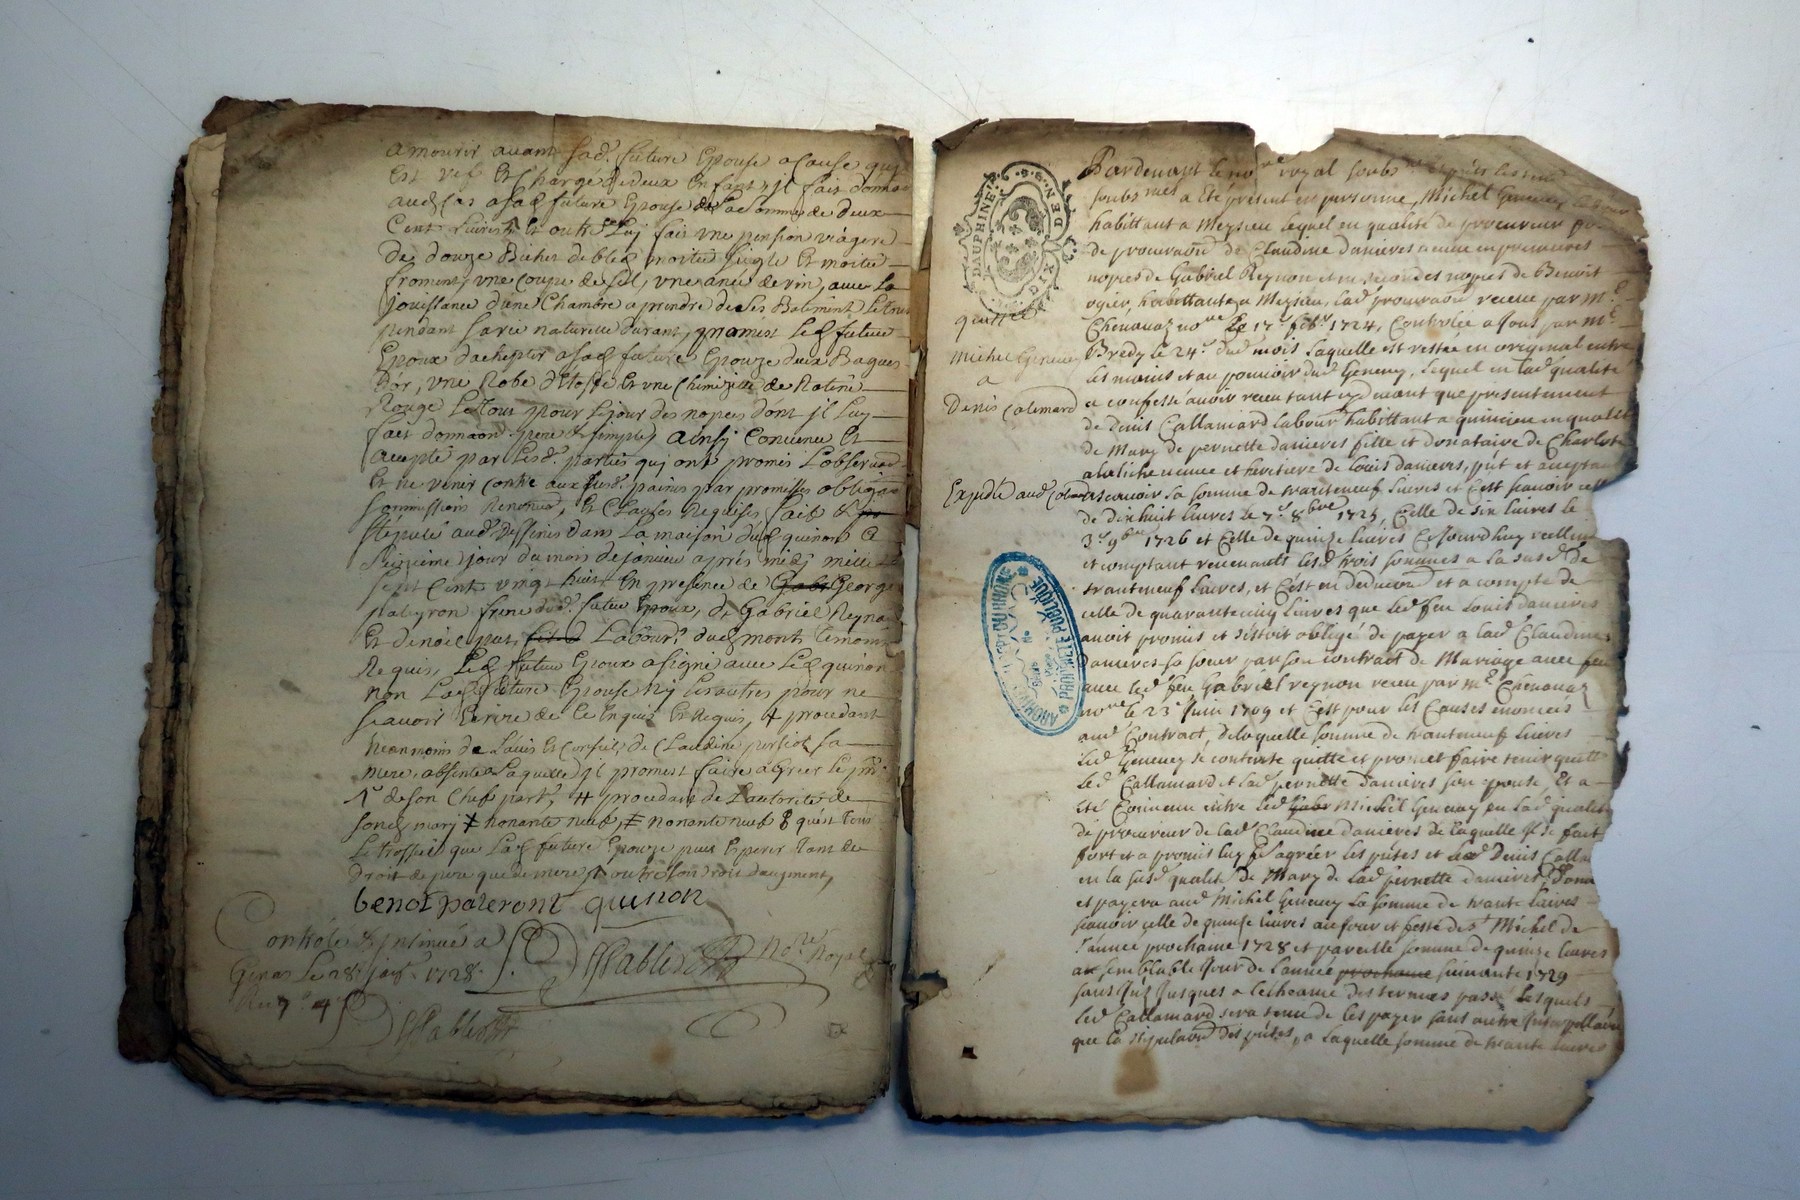 amourir avant sad. future Epouse a cause quil
Est vef Et Chargé de deux Enfans, jl fait donnaon
aud. cas a sad. future Epouse de La somme de deux
Cent Livres, Et outre Luy fait une pension viagere
de douze Bichet de bled moitié seigle Et moitié
froment, une coupe de sel, une anée de vin, avec La
Jouissance d'une Chambre a prendre de ses Batiment, Le tout
pendant sa vie naturelle durant, promest Led. futeur
Epoux d'achepter a sad. future Epouze deux Bagues
d'or, une Robe d'Etoffe Et une Chimizette de Ratine
Rouge Le tout pour Le jour des nopces dont jl Luy
fait donnaon pure & simple, ainsy Convenu Et
accepté par Lesd. parties qui ont promis L'observer
Et ne venir contre aux susd. paines par promesses obligaon
sommissions Renonon, Et Clauses Requises fait &
stépulé aud. Dessines dans La maison dud. quinon Ce
jour du mois de janvier aprés midy mille
sept Cent vingt huit En presence de George
pateyron frere dud. futeur Epoux, de Gabriel Reyna
Et denoel Labour. dud. mont temoins
Requis, Led. futeur Epoux a signé avec Led. quinon
non Lad. future Epouse ny Les autres pour ne
scavoir Ecrire de ce Enquis Et Requis, # procedant
neanmoins de L'avis Et Conseil de Claudine persiot sa
mere absente Laquelle jl promest faire agréer Le pnt
de son Chef part, # procedant de L'autorité de
sond. mary ≠ nonante neuf, ≠ nonante neuf & quest Tous
Le trossel que Lad. future Epouze puis Esperer Tant de
Droit de pere que de mere, outre son droit daugment,
benoit pateront quinon
Controlé & jnsinué a
Genas Le 28e janr. 1728. No.re Royal
Par devant le nore royal soubs
soubs nnes a Eté présent en personne, Michel Geneney
habittant a Meysieu lequel en qualité de procureur
de procuraon de Claudine danieres venue en premieres
nopces de Gabriel Reynon et en secondes nopces de Benoit
ogier, habittants a Meysieu, lad. procuraon receue par Me
Chenavaz nore le 17e feb. 1724, Controlée a Jons par Me
Bredy le 24e dud. mois laquelle est restée en original entre
les mains et au pouvoir dud. Geneney, lequel en lad. qualité
a confessé avoir receu tant cy devant que presentement
de denis Callamard labour. habittant a quincieu en qualité
de Mary de pernette danieres fille et donataire de Charlote
veuve et heritiere de Louis danieres, pnt et acceptant
ascavoir la somme de trante neuf livres et c'est scavoir celle
de dix huit livres le 7e 8bre 1725, Celle de six livres le
3e 9bre 1726 et Celle de quinze livres Cejourdhuy reellement
et comptant revenants lesd. trois sommes a la susd. de
trante neuf livres, et c'est en deduction et a compte de
celle de quarante cinq livres que led. feu Louis danieres
avoit promis et s'estoit obligé de payer a lad. Claudine
danieres sa soeur par son contract de Mariage avec feu
avec led. feu Gabriel reynon receu par Me Chenavaz
nore le 23e Juin 1709 et c'est pour les Causes enoncées
aud. Contract, de laquelle somme de trante neuf livres
led. Geneney se contente quitte et promet faire tenir quitte
led. Callamard et lad. pernette danieres son epouse, Et a
eté Convenu entre led. Michel Geneney en lad. qualité
de procureur de lad. Claudine danieres de laquelle jl se fait
fort et a promis luy fe agréer les pntes et led. Denis Calla
en la susd. qualité de Mary de lad. pernette danieres, donn
et payera aud. Michel Geneney la somme de trante livres
scavoir celle de quinze livres au jour et feste de st Michel de
l'année prochaine 1728 et pareille somme de quinze livres
a semblable jour de l'année prochaine suivante 1729
sans jnt. jusques a l'echeance des termes passé lesquels
led. Callamard sera tenu de les payer sans autre jnterpellaon
que la stipulaon des pntes, a laquelle somme de trante livres
DAUPHINE
DEN
SIX
quittce
Michel Geneney
a
Denis Calemard
Expédié aud. Calemard
ARCHIVES
PROPRIÉTÉ PUBLIQUE